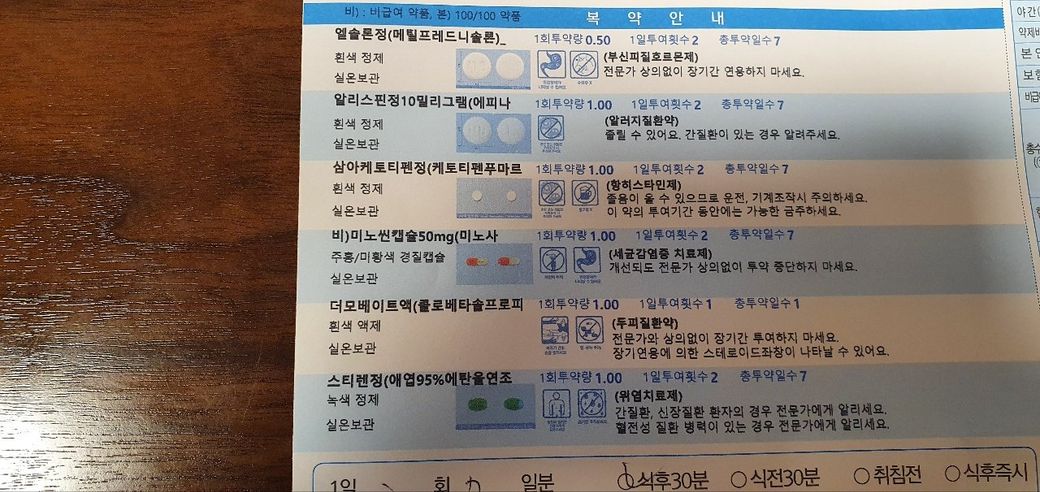 비) : 비급여 약품, 본) 100/100 약품
복 약 안 내
엘솔론정(메틸프레드니솔론)_ 1회투약량 0.50 1일투여횟수 2 총투약일수 7
흰색 정제 (부신피질호르몬제)
실온보관 전문가 상의없이 장기간 연용하지 마세요.
알리스핀정10밀리그램(에피나 1회투약량 1.00 1일투여횟수 2 총투약일수 7
흰색 정제 (알러지질환약)
실온보관 졸릴 수 있어요. 간질환이 있는 경우 알려주세요.
삼아케토티펜정(케토티펜푸마르 1회투약량 1.00 1일투여횟수 2 총투약일수 7
흰색 정제 (항히스타민제)
졸음이 올 수 있으므로 운전, 기계조작시 주의하세요.
실온보관 이 약의 투여기간 동안에는 가능한 금주하세요.
비)미노씬캡슐50mg(미노사 1회투약량 1.00 1일투여횟수 2 총투약일수 7
주홍/미황색 경질캡슐 (세균감염증 치료제)
실온보관 개선되도 전문가 상의없이 투약 중단하지 마세요.
더모베이트액(클로베타솔프로피 1회투약량 1.00 1일투여횟수 1 총투약일수 1
흰색 액제 (두피질환약)
전문가와 상의없이 장기간 투여하지 마세요.
실온보관 장기연용에 의한 스테로이드좌창이 나타날 수 있어요.
스티렌정(애엽95%에탄올연조 1회투약량 1.00 1일투여횟수 2 총투약일수 7
녹색 정제 (위염치료제)
간질환, 신장질환 환자의 경우 전문가에게 알리세요.
실온보관 혈전성 질환 병력이 있는 경우 전문가에게 알리세요.
1일 회 일분 식후30분 식전30분 취침전 식후즉시
야간(
약제비
본 인
보 험
비급여
총수